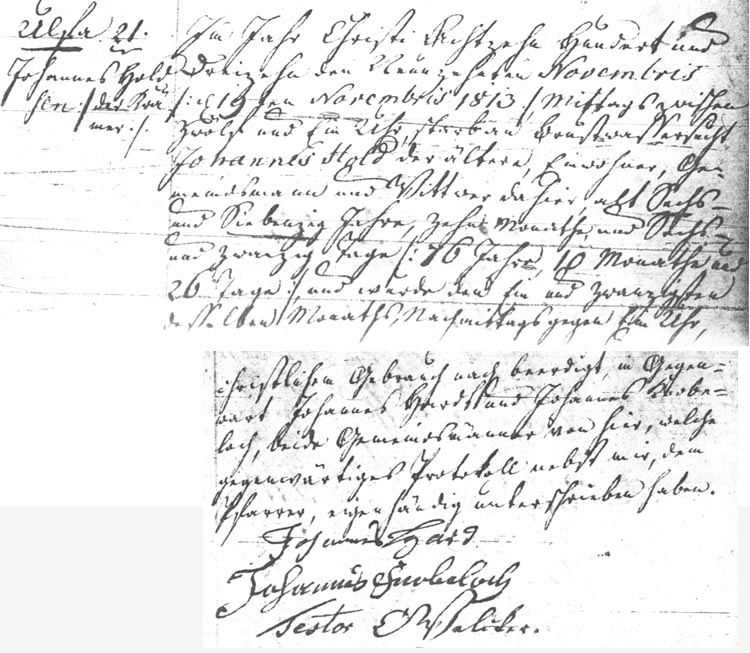 Ulfa 21.
Johannes Hold
sen: /: der Krä
mer :/.
Im Jahr Christi Achtzehn Hundert und
Dreizehn den Neunzehnten Novembris
/: d. 19ten Novembris 1813 :/ Mittags zwischen
zwölf und Ein Uhr, starb an Brustwassersucht
Johannes Hold der ältere, Einwohner, Ge-
meindsmann und Wittwer dahier alt Sechs-
und Siebenzig Jahre, Zehn Monathe, und Sechs-
und zwanzig Tage /: 76 Jahre, 10 Monathe und
26 Tage :/ und wurde den Ein und zwanzigsten
desselben Monaths, Nachmittags gegen Ein Uhr,
christlichem Gebrauch nach beerdigt, in Gegen=
wart Johannes Hardt und Johannes
loch, beide Gemeindsmänner von hier, welche
gegenwärtiges Protokoll nebst mir, dem
Pfarrer, eigenhändig unterschrieben haben.
Johannes Hard
Johannes